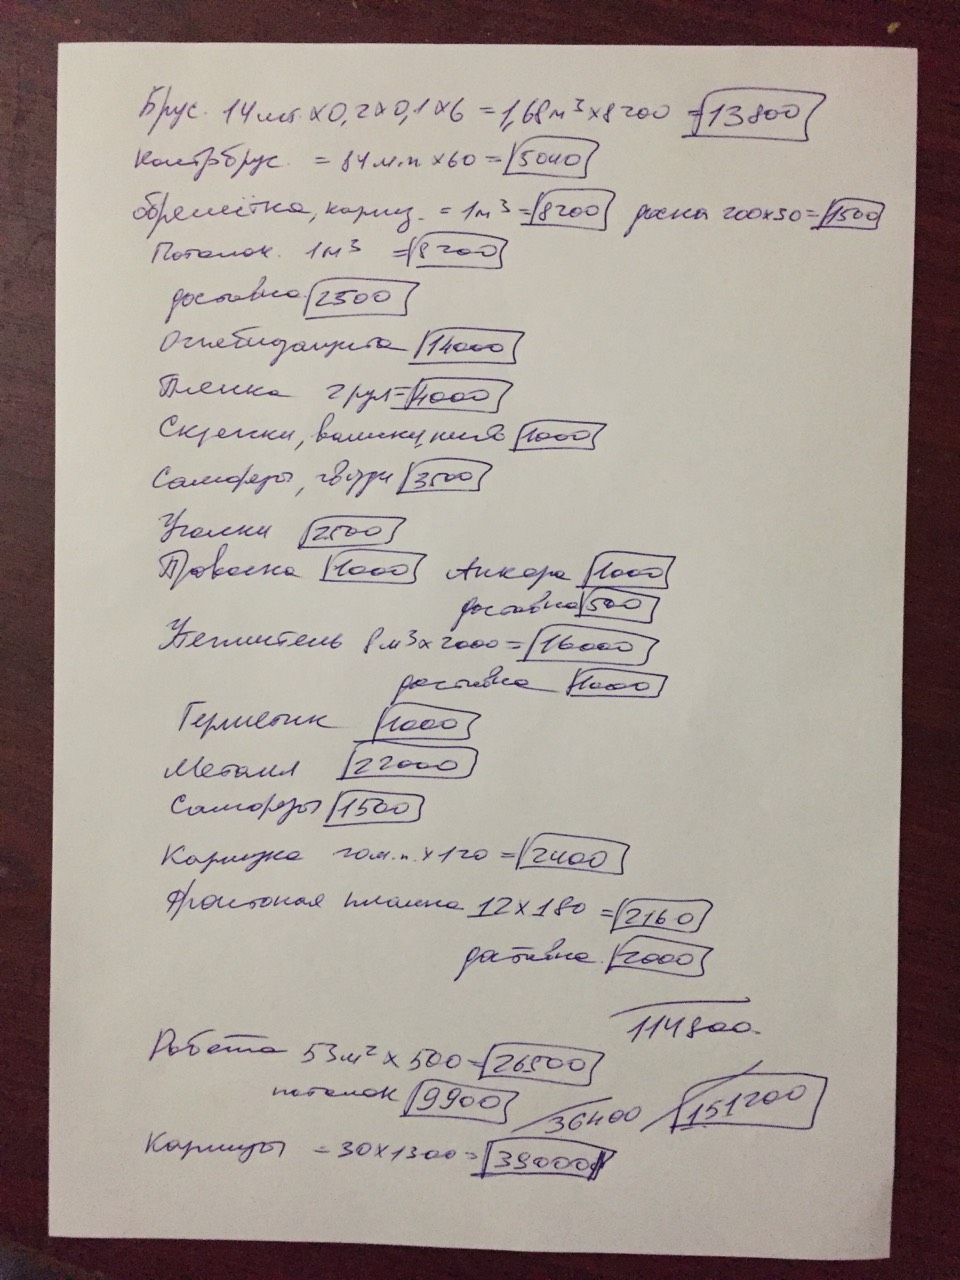 Брус. 14шт. x 0,2 x 0,1 x 6 = 1,68 м³ x 8200 = 13800
Контрбрус. = 84 м.п x 60 = 5040
обрешётка, карниз. = 1 м³ = 8200 доска 200x30 = 1500
Потолок. 1 м³ = 8200
доставка. 2500
Огнебиозащита 14000
Пленка 2 рул = 4000
Скрепки, валики, 1000
Саморезы, гвозди 3500
Уголки 2500
Проволка 1000 Анкера 1000
доставка 500
Утеплитель 8 м³ x 2000 = 16000
доставка 1000
Герметик 1000
Металл 22000
Саморезы 1500
Карнизка 20 м.п. x 120 = 2400
Фронтоная планка 12 x 180 = 2160
доставка. 2000
114800.
Работа 53 м² x 500 = 26500
потолок 9900 36400 151200
Карнизы = 30 x 1300 = 39000